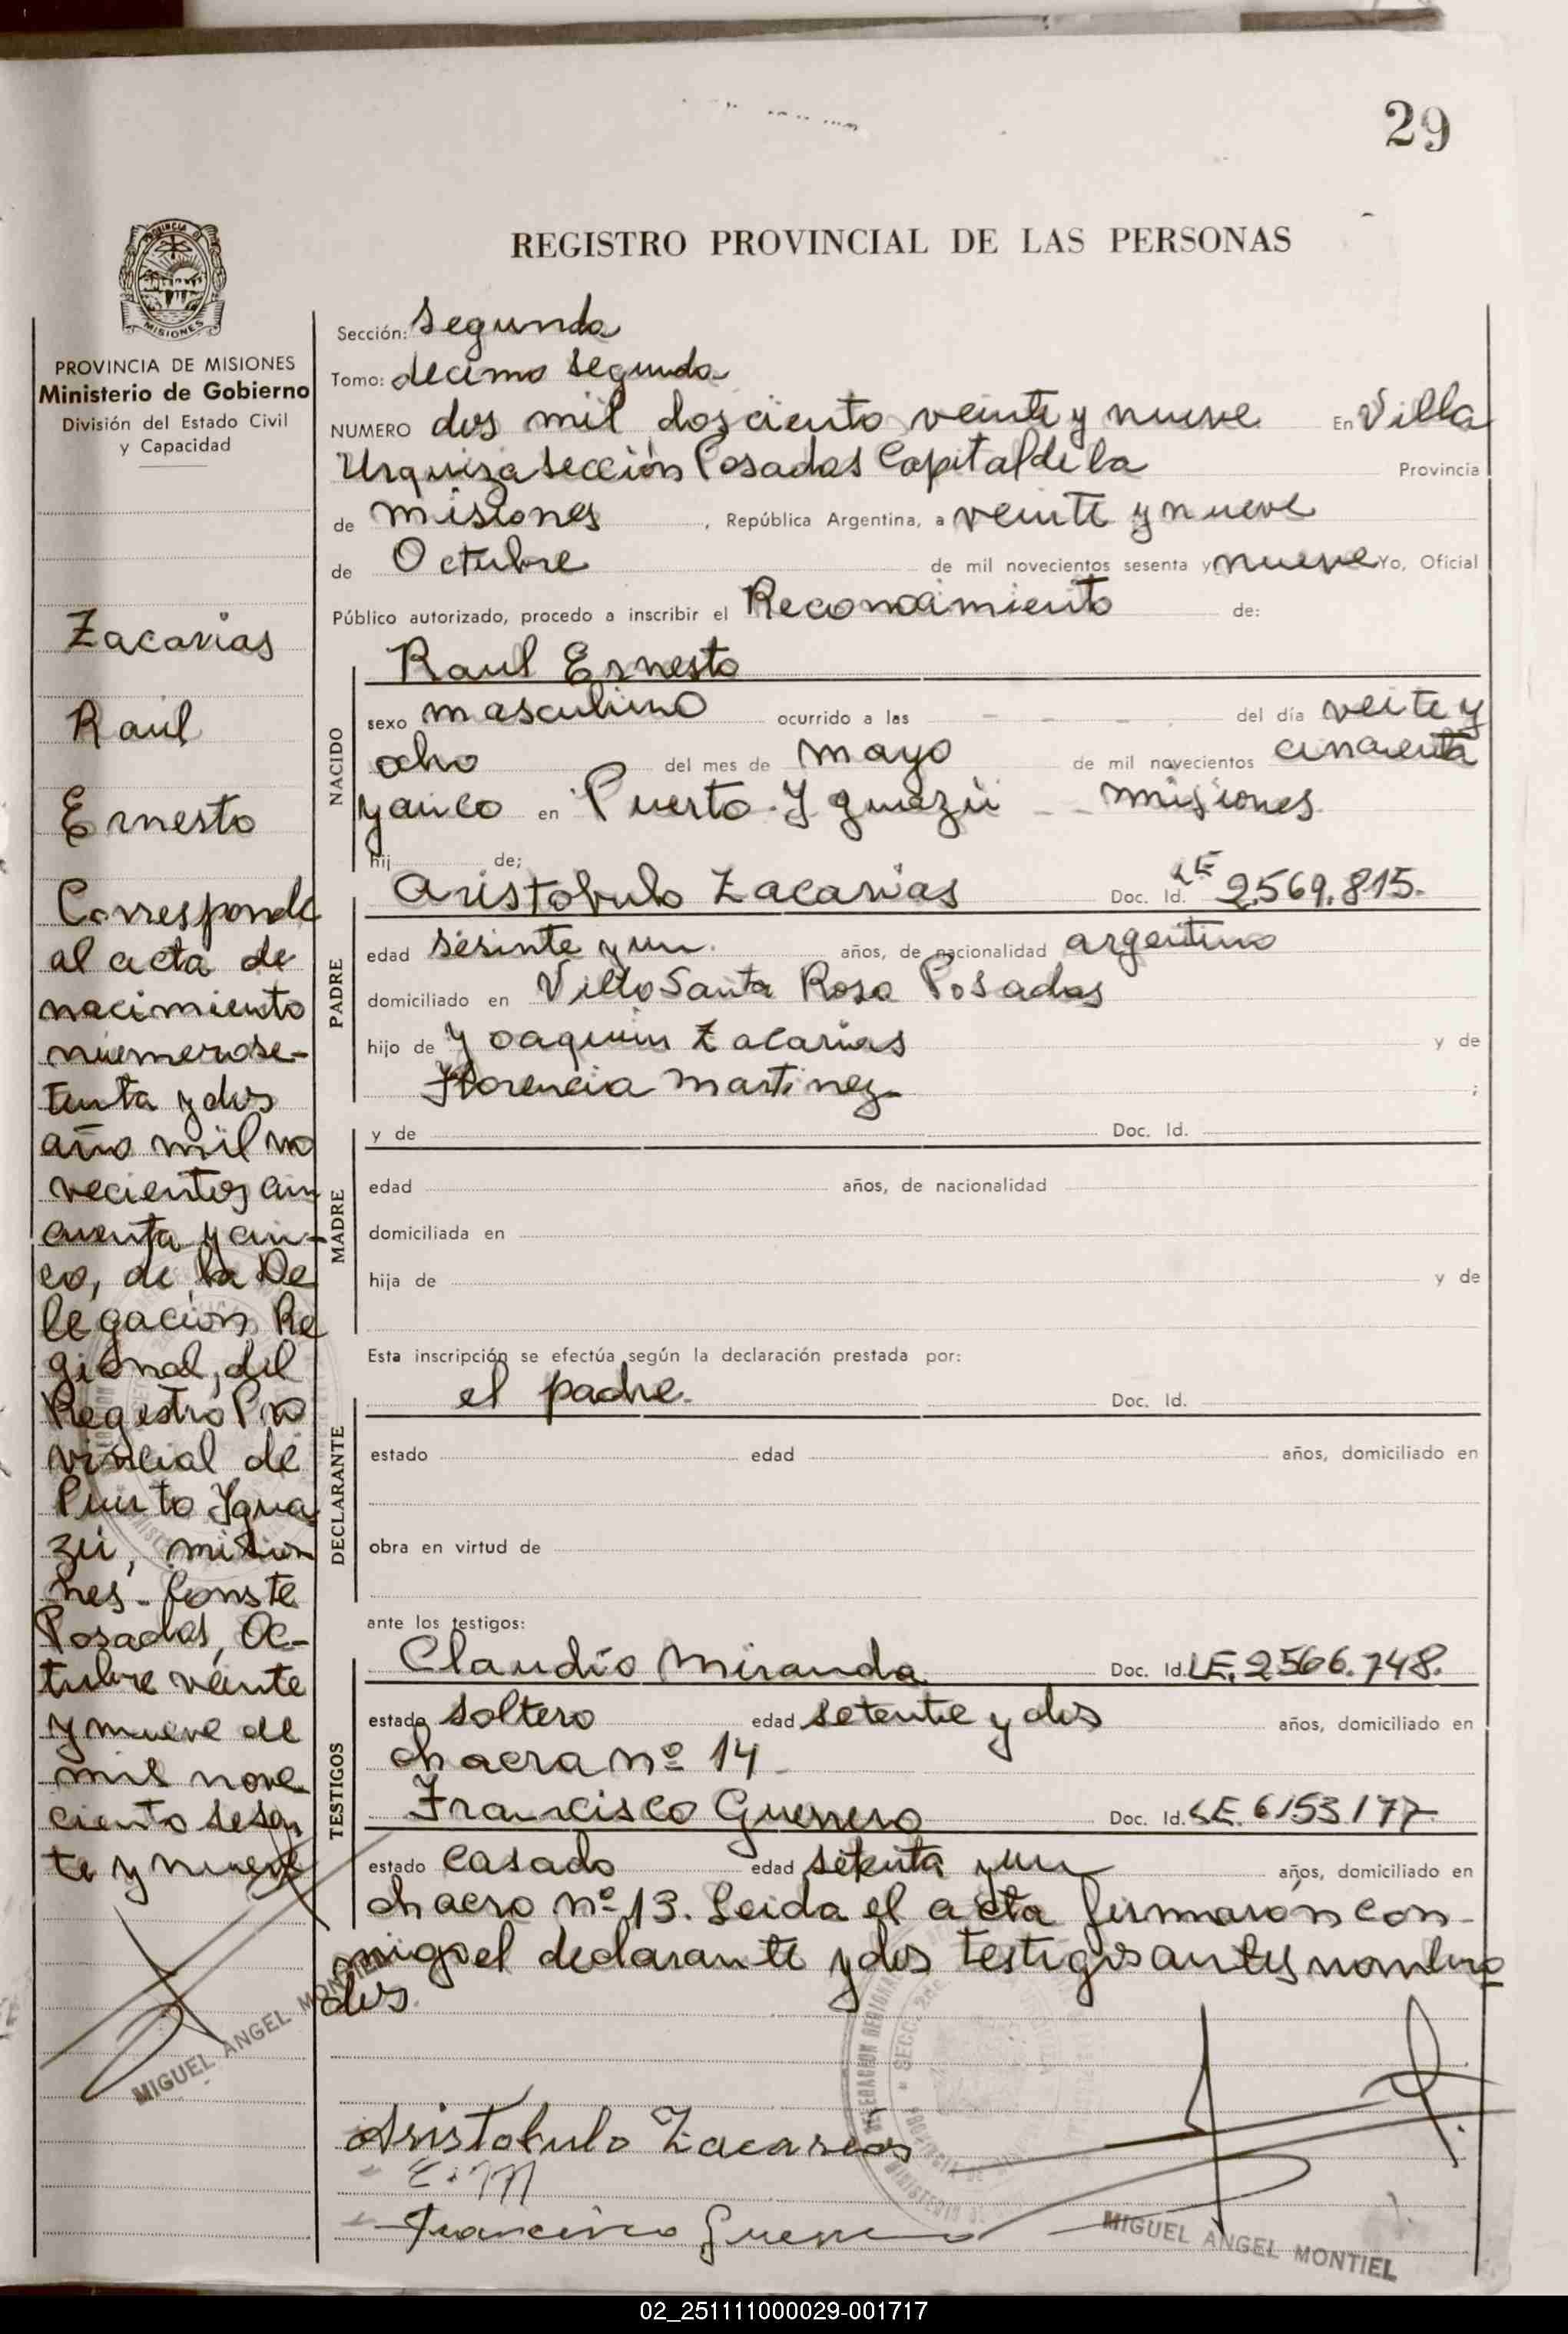 29
REGISTRO PROVINCIAL DE LAS PERSONAS
PROVINCIA DE MISIONES
Ministerio de Gobierno
División del Estado Civil
y Capacidad
Zacarias
Raul
Ernesto
Corresponde
al acta de
nacimiento
nuemero se-
tenta y dos
año mil no
vecientos cin
cuenta y cin-
co, de la De
legación Re
gional, del
Registro Pro
vincial de
Puerto Ygua
zú, mision
nes. Conste
Posadas, Oc-
tubre veinte
y nueve de
mil nove
ciento sesen
ta y nueve
MIGUEL ANGEL MONTIEL
Sección: Segunda
Tomo: decimo segunda
NUMERO dos mil dosciento veinte y nueve En Villa
Urquiza sección Posadas Capital de la Provincia
de misiones, República Argentina, a veinte y nueve
de Octubre de mil novecientos sesenta y nueve Yo, Oficial
Público autorizado, procedo a inscribir el Reconocimiento de:
Raul Ernesto
NACIDO
sexo masculino ocurrido a las - - - - del día veite y
ocho del mes de mayo de mil novecientos cincuenta
y cinco en Puerto Yguazú - - misiones
hij de;
PADRE
Aristobulo Zacarias Doc. Id. LE 2.569.815.
edad sesinte y un. años, de nacionalidad argentino
domiciliado en Villa Santa Rosa Posadas
hijo de Yoaquin Zacarias y de
Florencia Martinez- ;
MADRE
y de Doc. Id.
edad años, de nacionalidad
domiciliada en
hija de y de
Esta inscripción se efectúa según la declaración prestada por:
DECLARANTE
el padre. Doc. Id.
estado edad años, domiciliado en
obra en virtud de
ante los testigos:
TESTIGOS
Claudio Miranda Doc. Id. LE. 2566.748.
estado soltero edad setente y dos años, domiciliado en
chacra nº 14
Francisco Guerrero Doc. Id. LE. 6153177-
estado casado edad setenta y un años, domiciliado en
chacro nº 13. Leida el acta firmaron con-
migo el declarante y dos testigos antes nombra
dos.
Aristobulo Zacarias
C. M
Francisco Guerrero
MIGUEL ANGEL MONTIEL
02_251111000029-001717